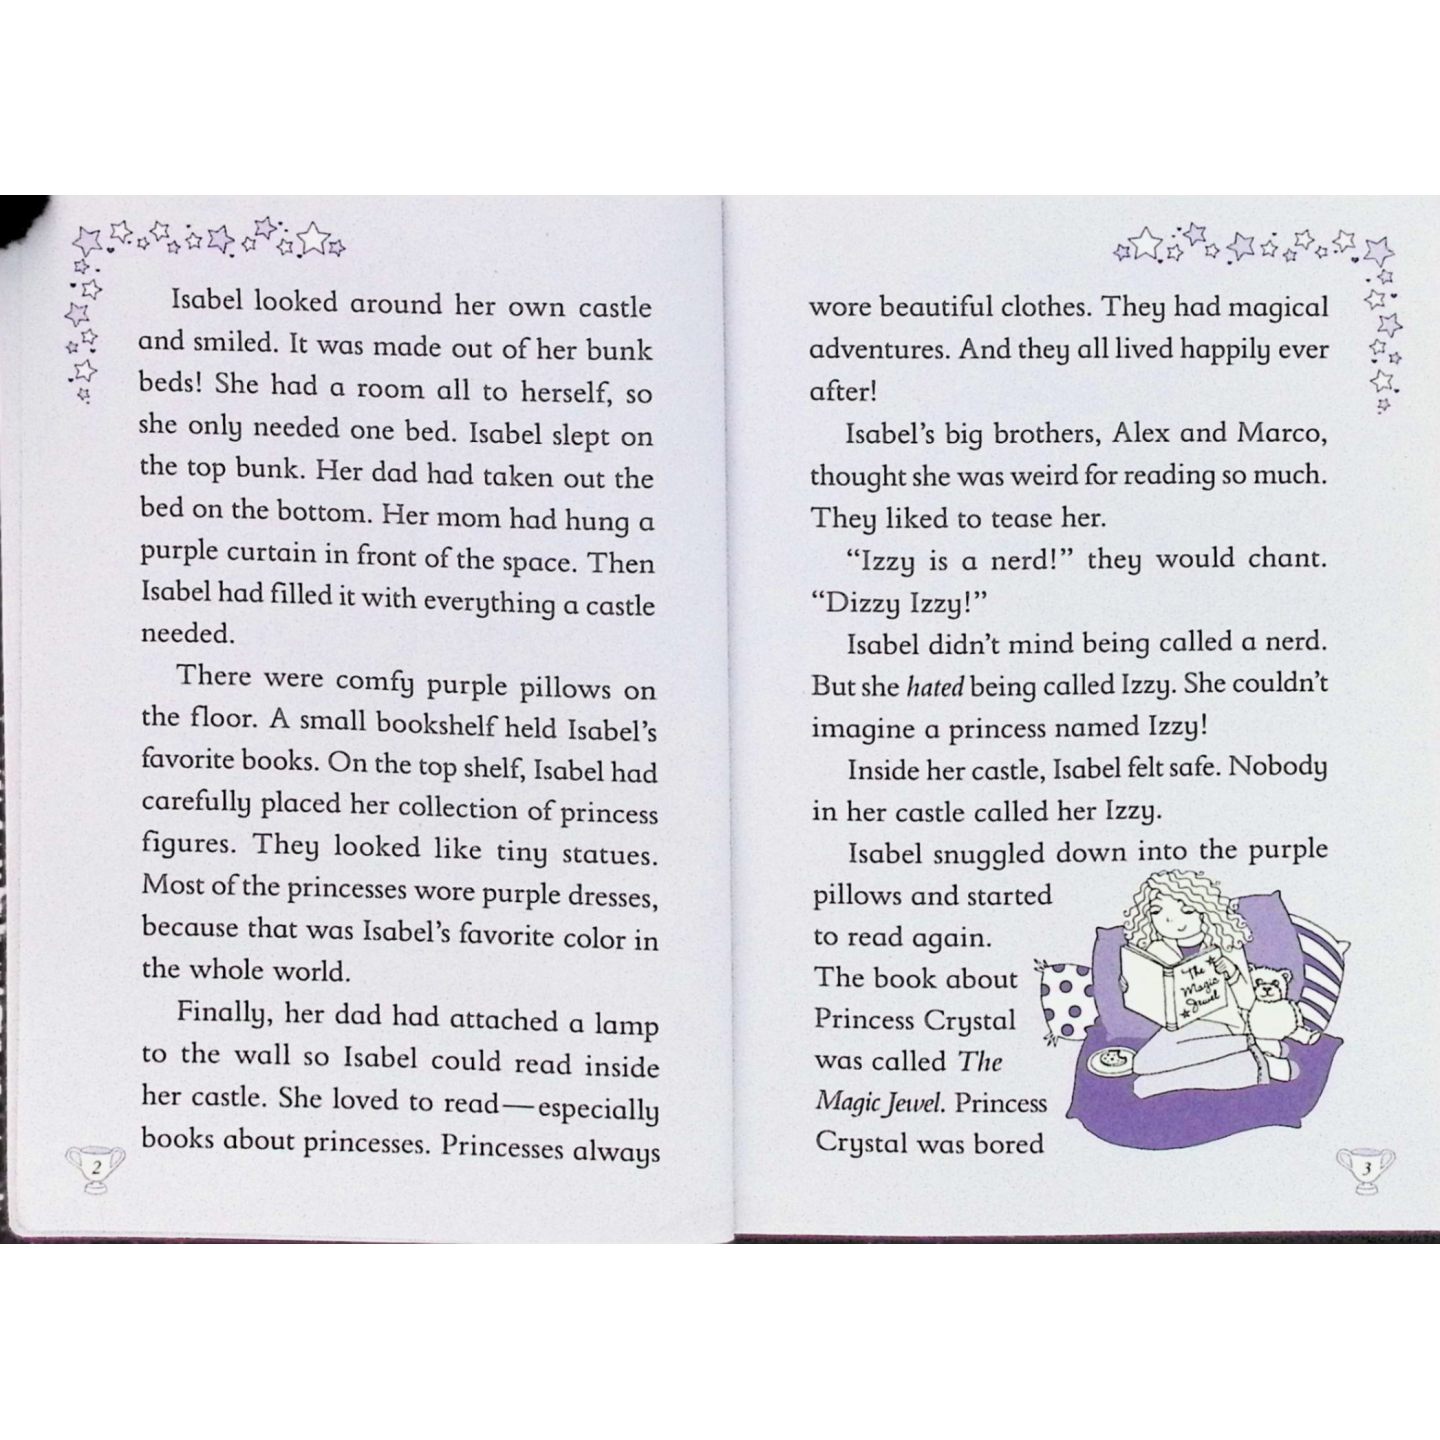 Isabel looked around her own castle
and smiled. It was made out of her bunk
beds! She had a room all to herself, so
she only needed one bed. Isabel slept on
the top bunk. Her dad had taken out the
bed on the bottom. Her mom had hung a
purple curtain in front of the space. Then
Isabel had filled it with everything a castle
needed.
There were comfy purple pillows on
the floor. A small bookshelf held Isabel's
favorite books. On the top shelf, Isabel had
carefully placed her collection of princess
figures. They looked like tiny statues.
Most of the princesses wore purple dresses,
because that was Isabel's favorite color in
the whole world.
Finally, her dad had attached a lamp
to the wall so Isabel could read inside
her castle. She loved to read—especially
books about princesses. Princesses always
2
wore beautiful clothes. They had magical
adventures. And they all lived happily ever
after!
Isabel's big brothers, Alex and Marco,
thought she was weird for reading so much.
They liked to tease her.
“Izzy is a nerd!” they would chant.
“Dizzy Izzy!”
Isabel didn't mind being called a nerd.
But she hated being called Izzy. She couldn't
imagine a princess named Izzy!
Inside her castle, Isabel felt safe. Nobody
in her castle called her Izzy.
Isabel snuggled down into the purple
pillows and started
to read again.
The book about
Princess Crystal
was called The
Magic Jewel. Princess
Crystal was bored
The
Magic
Jewel
3